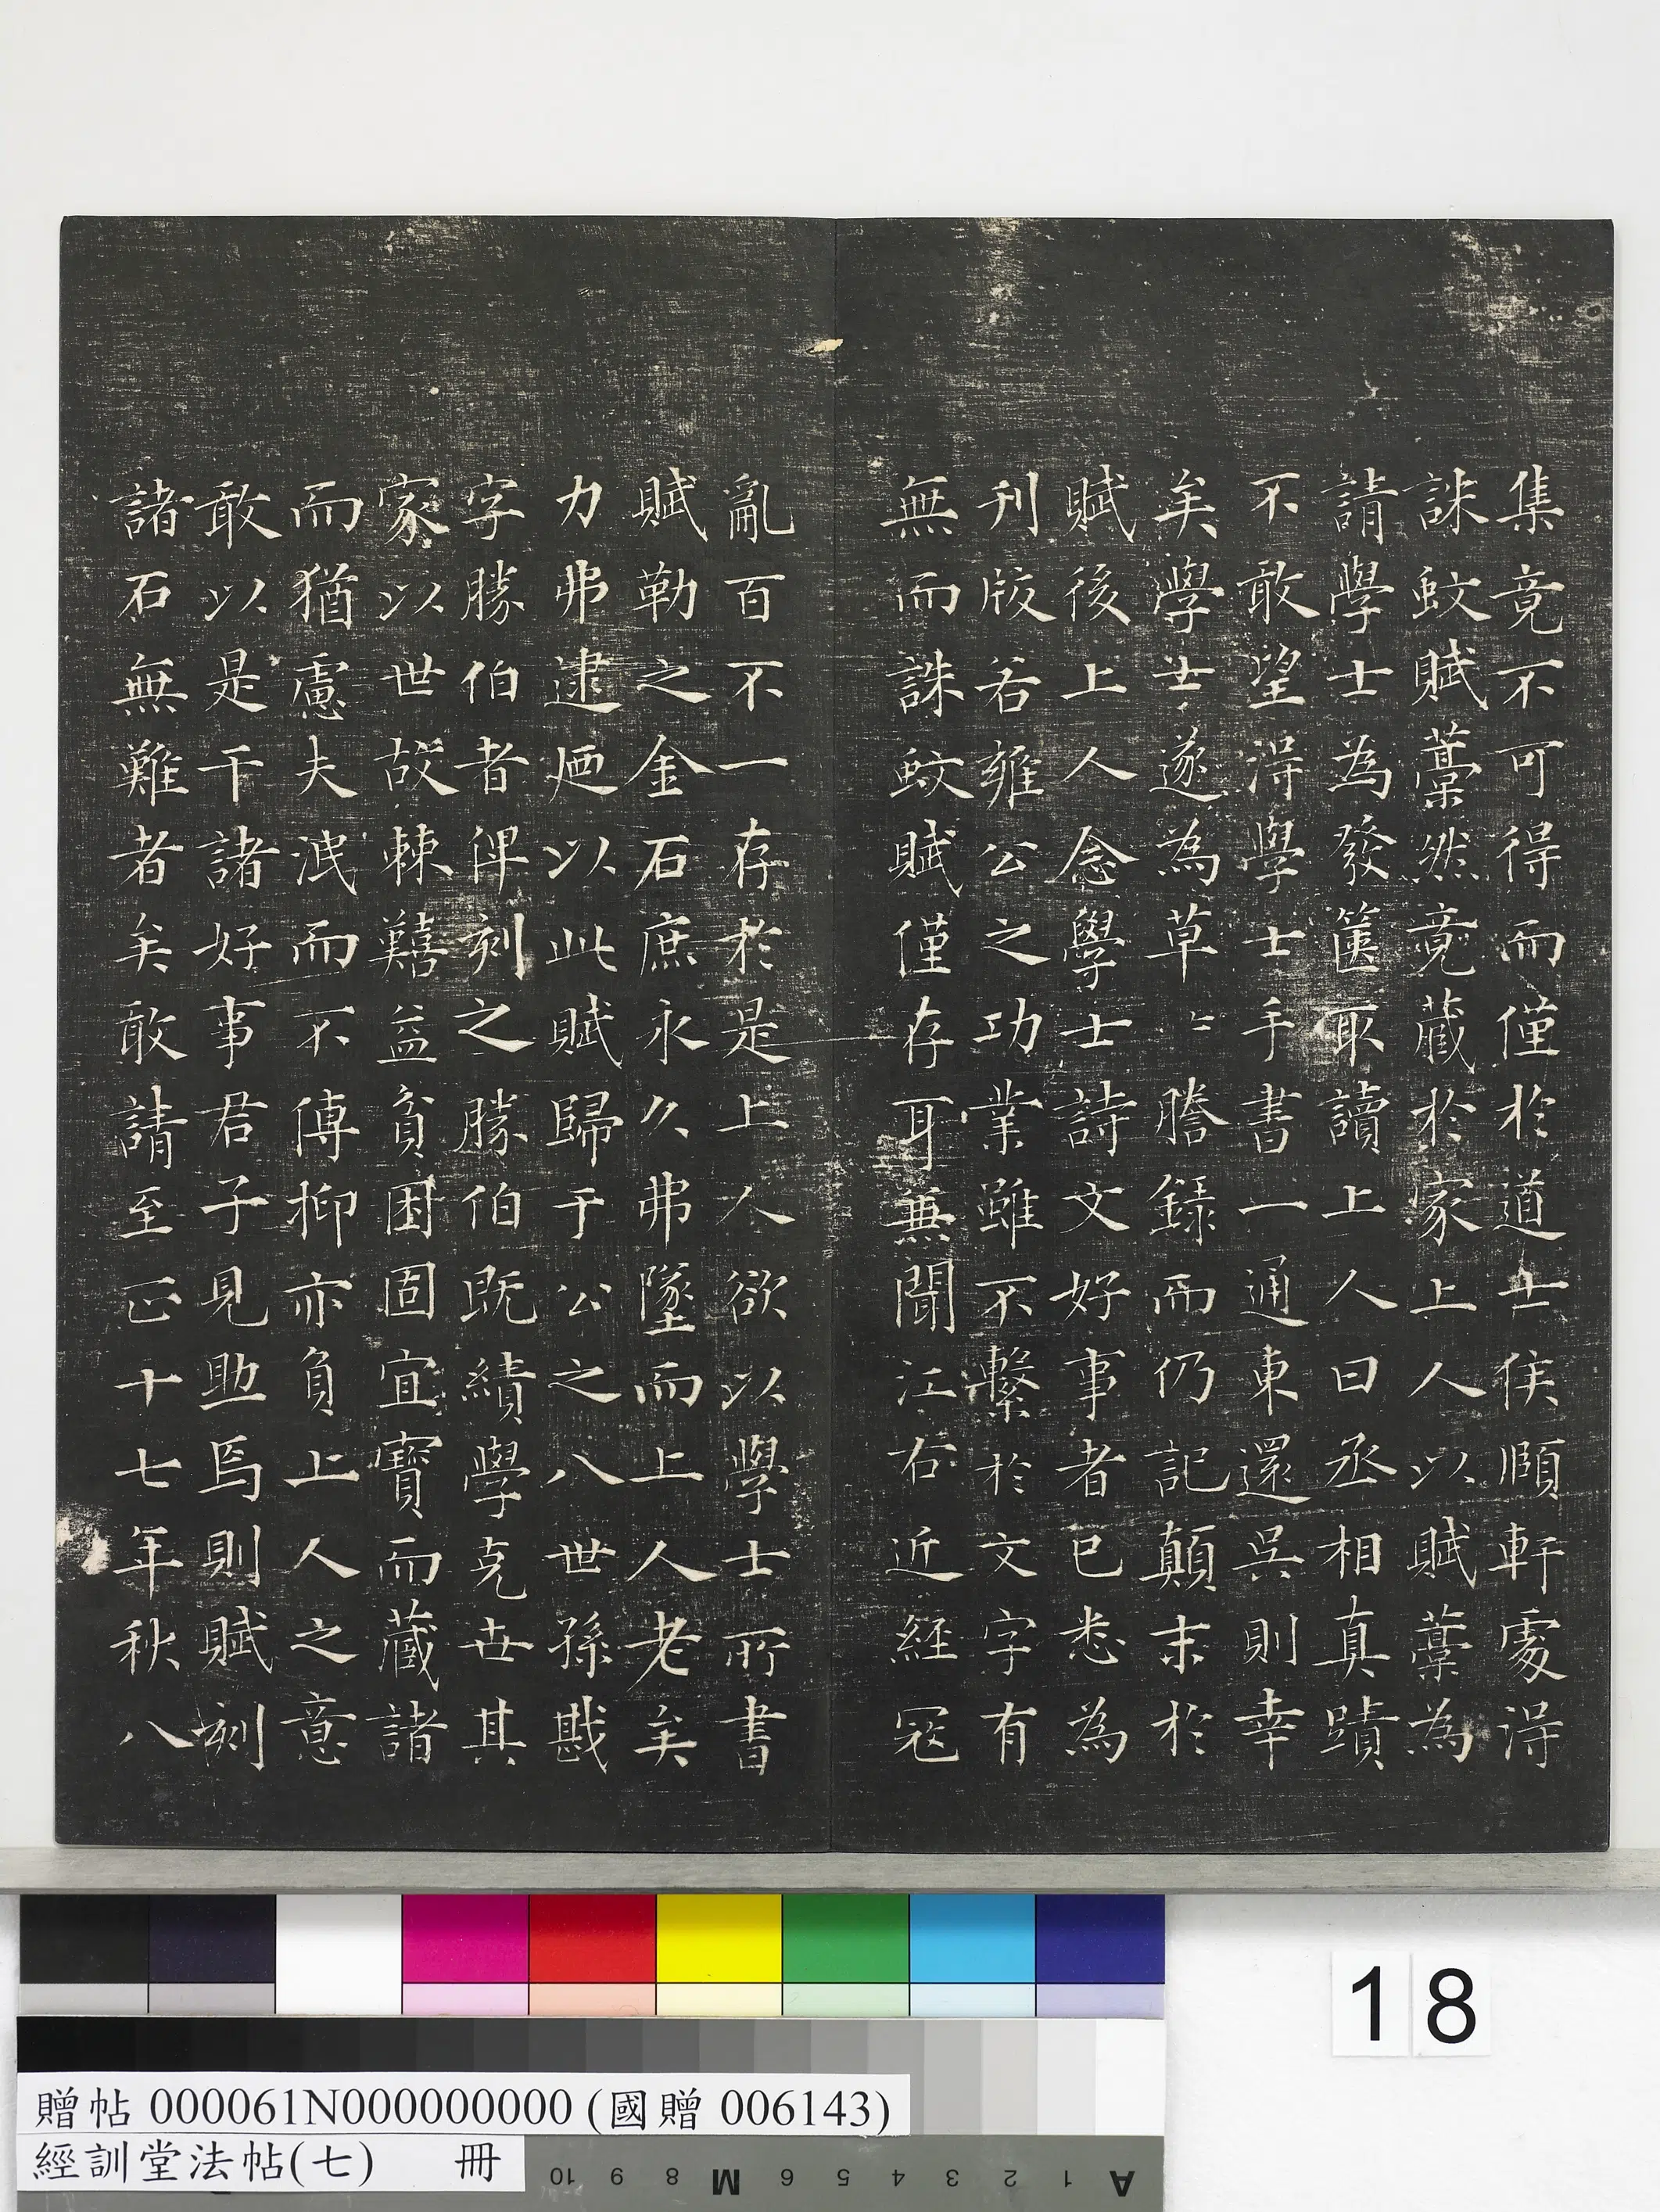 集竟不可得而僅於道士侯頤軒處得
誅蚊賦藁然竟藏於家上人以賦藁為
請學士為發篋取讀上人曰丞相真蹟
不敢望得學士手書一通東還吳則幸
矣學士遂為草〻謄録而仍記顛末於
賦後上人念學士詩文好事者已悉為
刋版若雍公之功業雖不繫於文字有
無而誅蚊賦僅存耳無聞江右近經冦
亂百不一存於是上人欲以學士所書
賦勒之金石庶永久弗墜而上人老矣
力弗逮廼以此賦歸于公之八世孫戡
字勝伯者俾刻之勝伯既績學克世其
家以世故棘囏益貧困固宜寳而藏諸
而猶慮夫泯而不傳抑亦負上人之意
敢以是干諸好事君子見助焉則賦刻
諸石無難者矣敢請至正十七年秋八
18
贈帖 000061N000000000 (國贈 006143)
經訓堂法帖(七) 冊
A 1 2 3 4 5 6 M 8 9 10